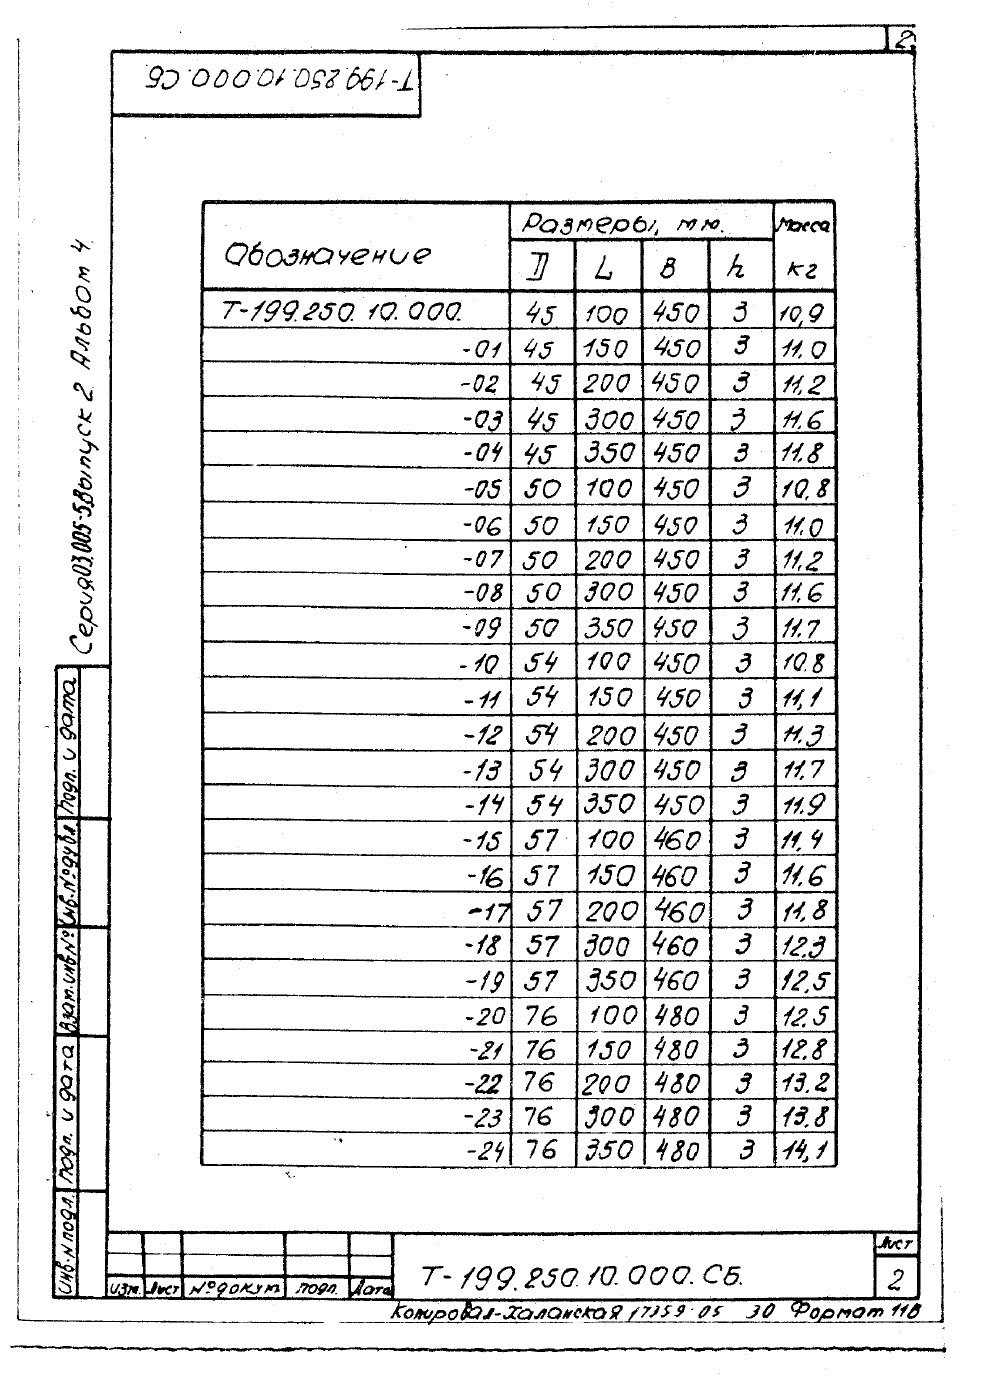 2
Т-199.250.10.000.СБ
Серия 03.005-5 Выпуск 2 Альбом 4.
Обозначение Размеры, мм. Масса кг
D L B h
Т-199.250.10.000. 45 100 450 3 10,9
-01 45 150 450 3 11.0
-02 45 200 450 3 11,2
-03 45 300 450 3 11.6
-04 45 350 450 3 11.8
-05 50 100 450 3 10,8
-06 50 150 450 3 11.0
-07 50 200 450 3 11.2
-08 50 300 450 3 11.6
-09 50 350 450 3 11.7
-10 54 100 450 3 10.8
-11 54 150 450 3 11,1
-12 54 200 450 3 11.3
-13 54 300 450 3 11.7
-14 54 350 450 3 11.9
-15 57 100 460 3 11,4
-16 57 150 460 3 11.6
-17 57 200 460 3 11,8
-18 57 300 460 3 12.3
-19 57 350 460 3 12,5
-20 76 100 480 3 12.5
-21 76 150 480 3 12.8
-22 76 200 480 3 13.2
-23 76 300 480 3 13,8
-24 76 350 480 3 14,1
Подп. и дата
Инв.№дубл.
Взам.инв№
Подп. и дата
Инв.N подл.
Изм. Лист №докум подп. Дата
Т-199.250.10.000.СБ.
Лист
2
Копировал-Халанская 17359-05 30 Формат 11В